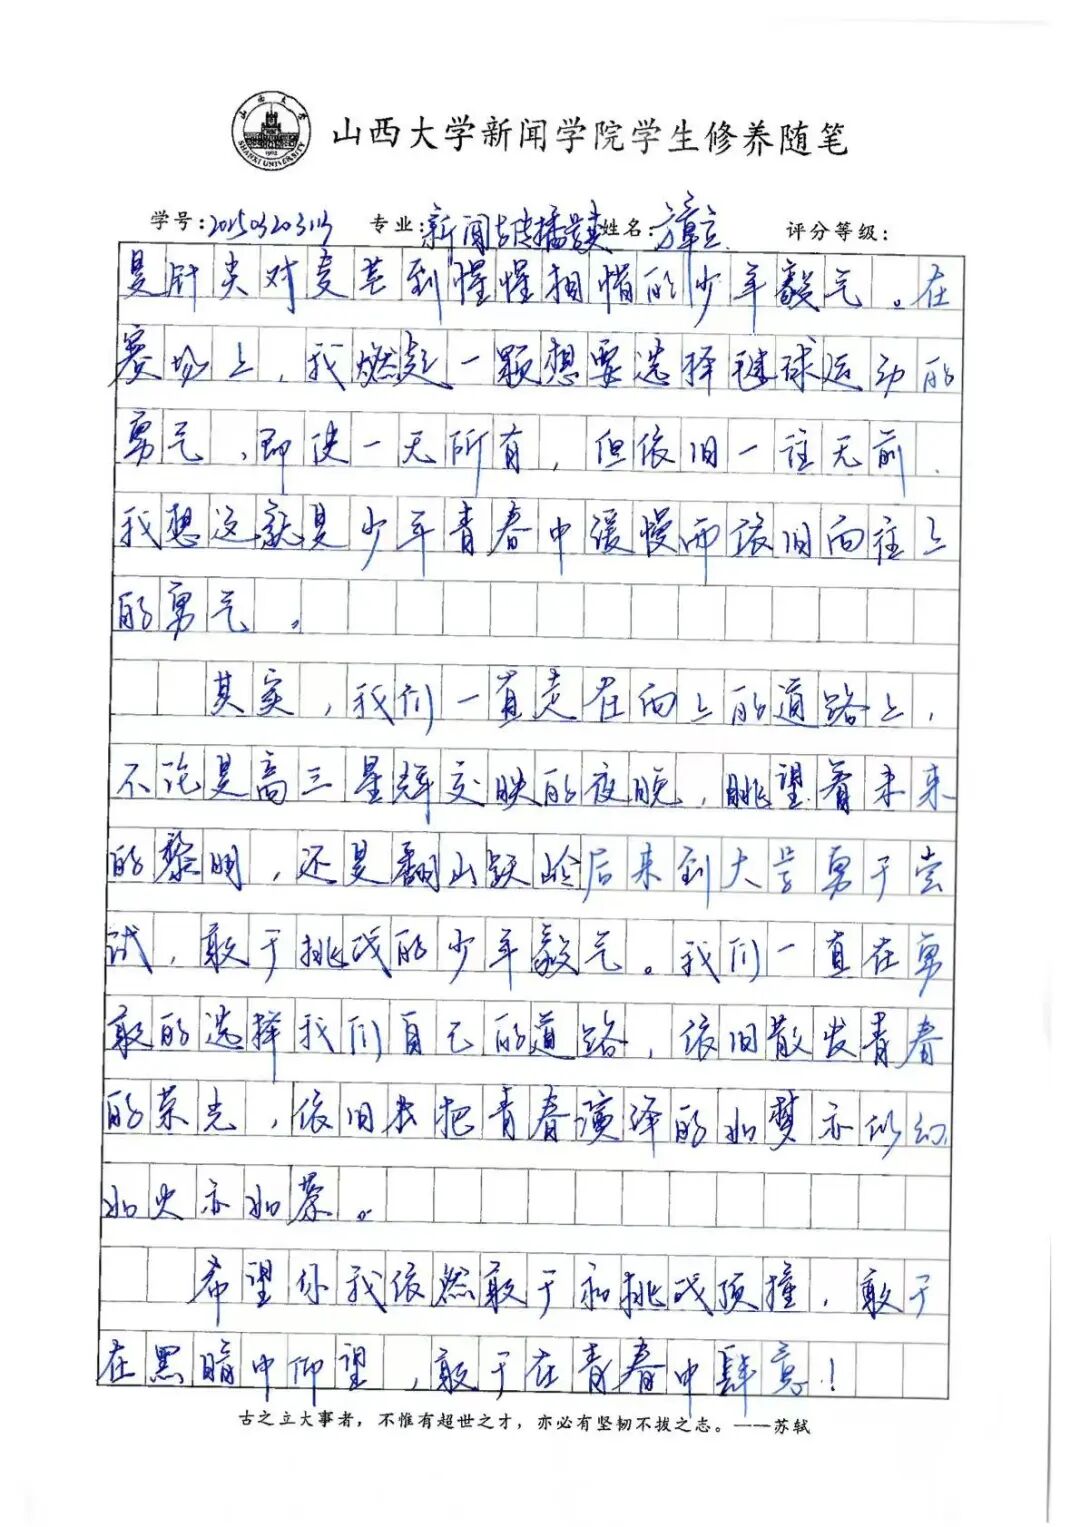 山西大学
SHANXI UNIVERSITY
1902
山西大学新闻学院学生修养随笔
学号: 专业:新闻传播 姓名: 章立 评分等级:
是针尖对麦芒到惺惺相惜的少年毅气。在
赛场上,我燃起一颗想要选择毽球运动的
勇气,即使一无所有,但依旧一往无前.
我想这就是少年青春中缓慢而依旧向往上
的勇气。
其实,我们一直走在向上的道路上,
不论是高三星辉交映的夜晚,眺望着未来
的黎明,还是翻山跃岭后来到大学勇于尝
试,敢于挑战的少年毅气。我们一直在勇
敢的选择我们自己的道路,依旧散发青春
的荣光,依旧把青春演绎的如梦亦似幻
如火亦如荼。
希望你我依然敢于和挑战顶撞,敢于
在黑暗中仰望,敢于在青春中肆意!
古之立大事者,不惟有超世之才,亦必有坚韧不拔之志。——苏轼